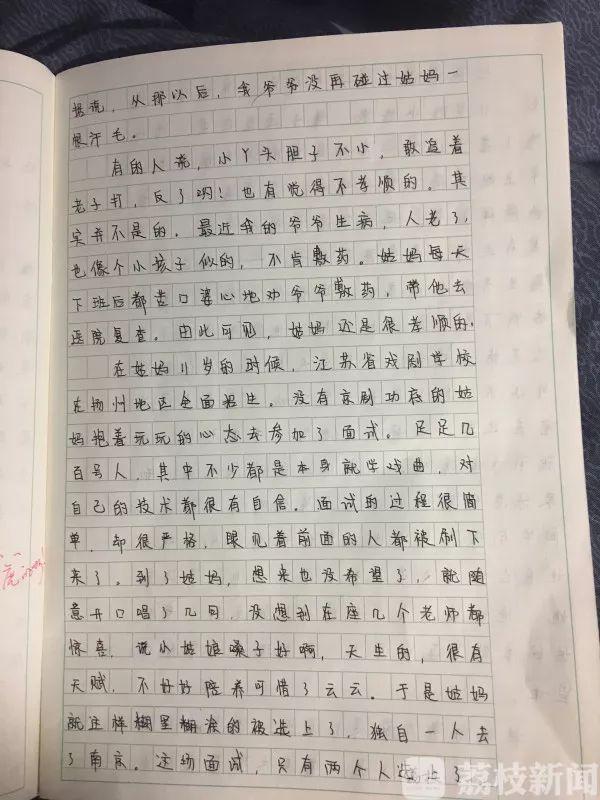 据说，从那以后，我爷爷没再碰过姑妈一
根汗毛。
有的人说，小丫头胆子不小，敢追着
老子打，反了哟！也有觉得不孝顺的。其
实并不是的。最近我的爷爷生病，人老了，
也像个小孩子似的，不肯敷药。姑妈每天
下班后都苦口婆心地劝爷爷敷药，带他去
医院复查。由此可见，姑妈还是很孝顺的。
在姑妈11岁的时候，江苏省戏剧学校
在扬州地区全面招生。没有京剧功底的姑
妈抱着玩玩的心态去参加了面试。足足几
百号人，其中不少都是本身就学戏曲，对
自己的技术都很有自信。面试的过程很简
单，却很严格，眼见着前面的人都被刷下
来了。到了姑妈，想来也没希望了，就随
意开口唱了几句，没想到在座几个老师都
惊喜，说小姑娘嗓子好啊，天生的，很有
天赋，不好好陪养可惜了云云。于是姑妈
就这样糊里糊涂的被选上了，独自一人去
了南京。这场面试，只有两个人
荔枝新闻